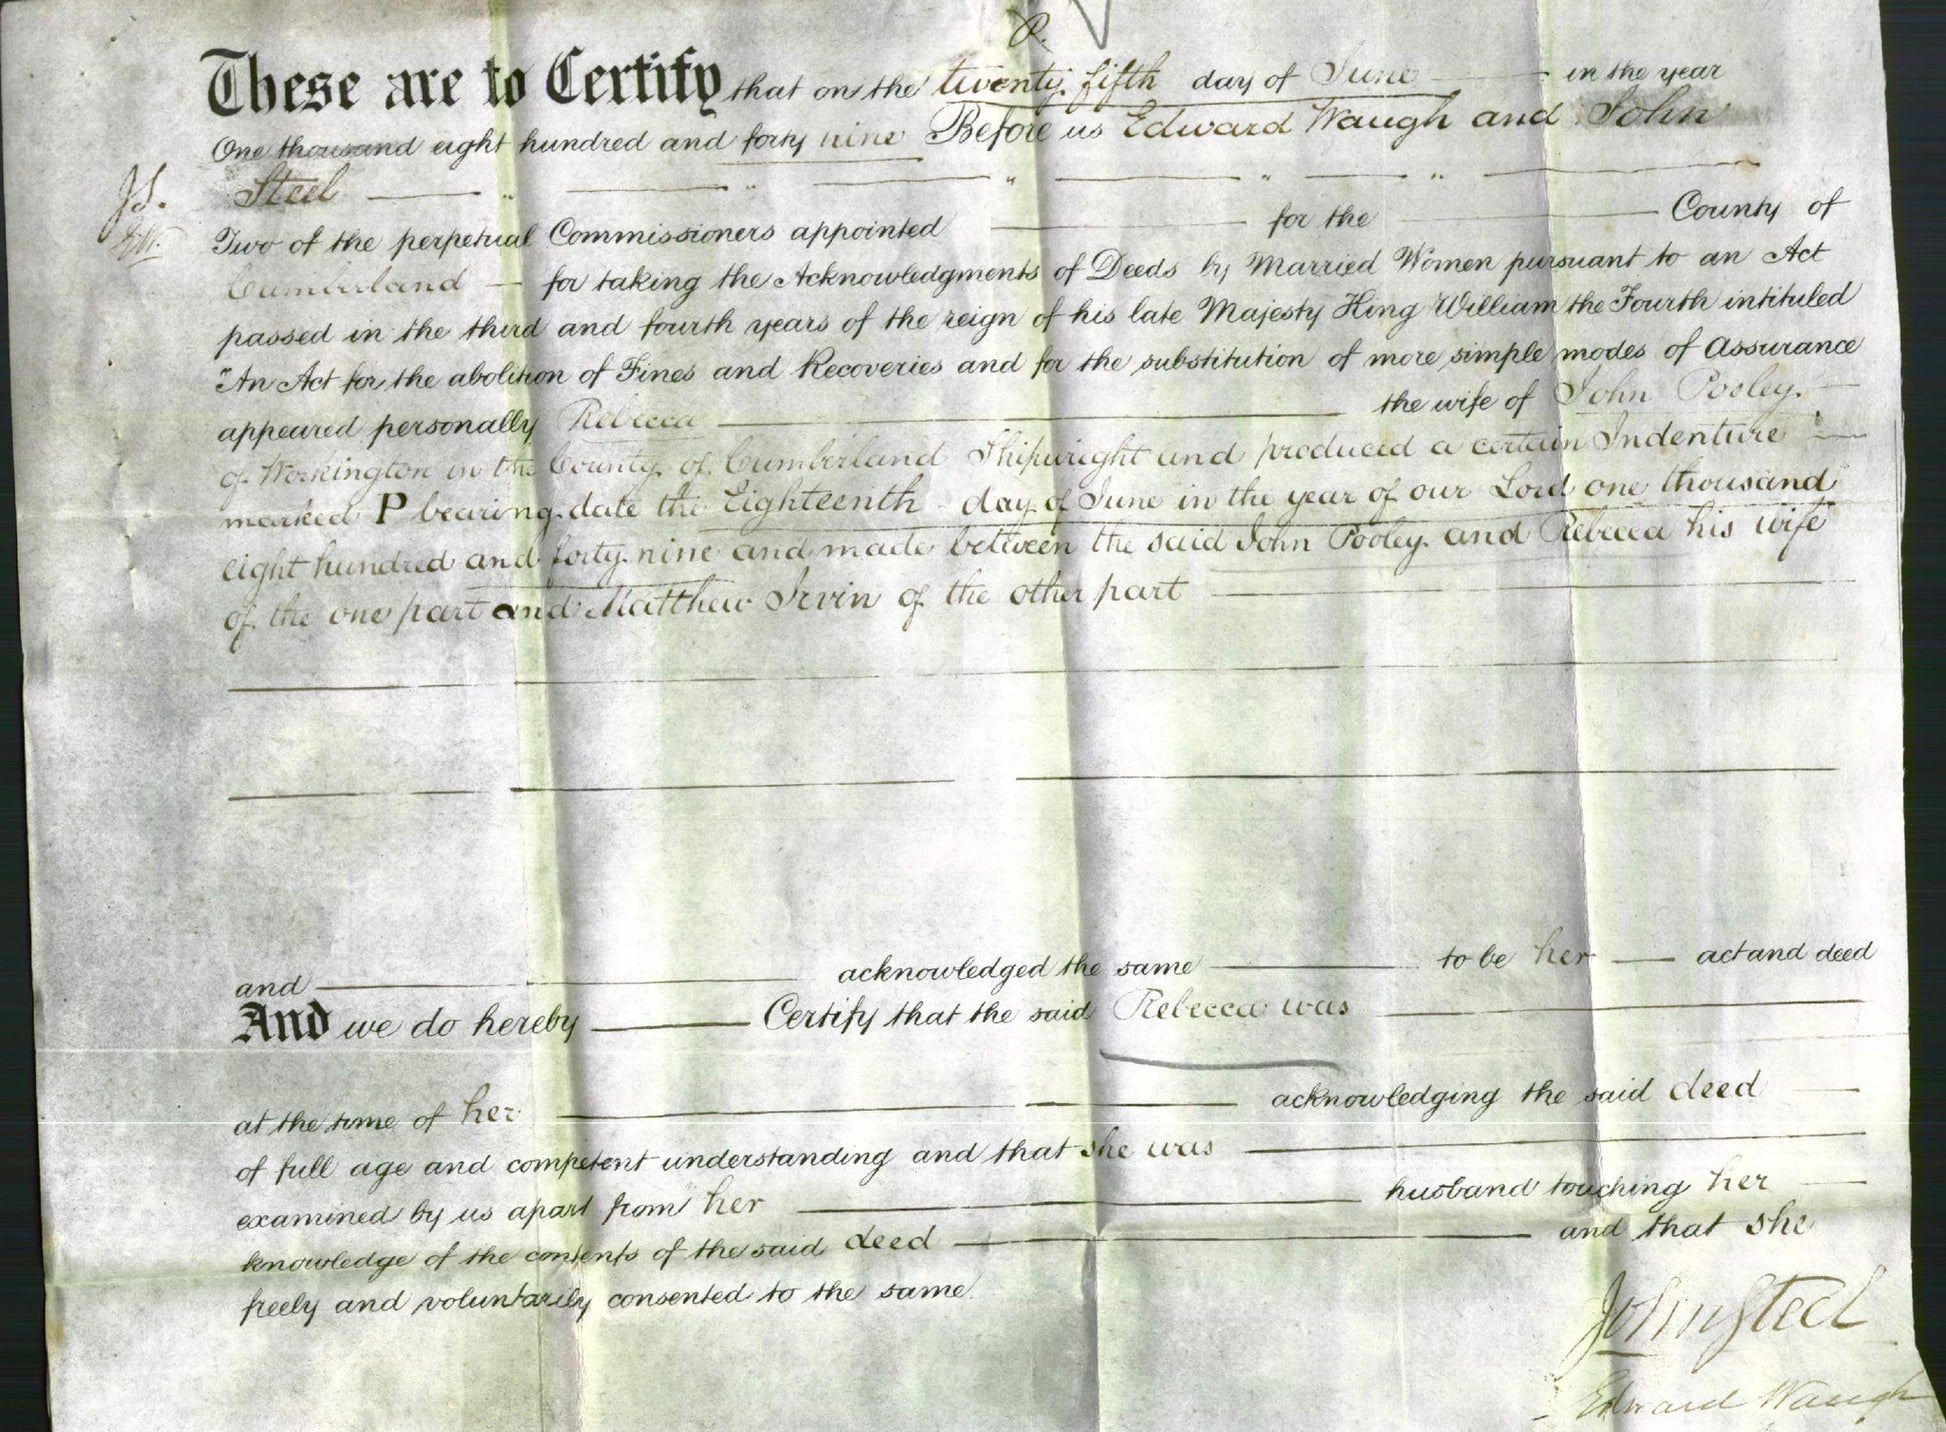 P.
These are to Certify that on the twenty fifth day of June in the year
One thousand eight hundred and forty nine Before us Edward Waugh and John
J.S. Steel
E.W. Two of the perpetual Commissioners appointed for the County of
Cumberland for taking the Acknowledgments of Deeds by Married Women pursuant to an Act
passed in the third and fourth years of the reign of his late Majesty King William the Fourth intituled
"An Act for the abolition of Fines and Recoveries and for the substitution of more simple modes of Assurance
appeared personally Rebecca the wife of John Pooley
of Workington in the County of Cumberland Shipwright and produced a certain Indenture
marked P bearing date the Eighteenth day of June in the year of our Lord one thousand
eight hundred and forty nine and made between the said John Pooley and Rebecca his wife
of the one part and Matthew Irvin of the other part
and acknowledged the same to be her act and deed
And we do hereby Certify that the said Rebecca was
at the time of her acknowledging the said deed
of full age and competent understanding and that she was
examined by us apart from her husband touching her
knowledge of the contents of the said deed and that she
freely and voluntarily consented to the same.
John Steel
Edward Waugh